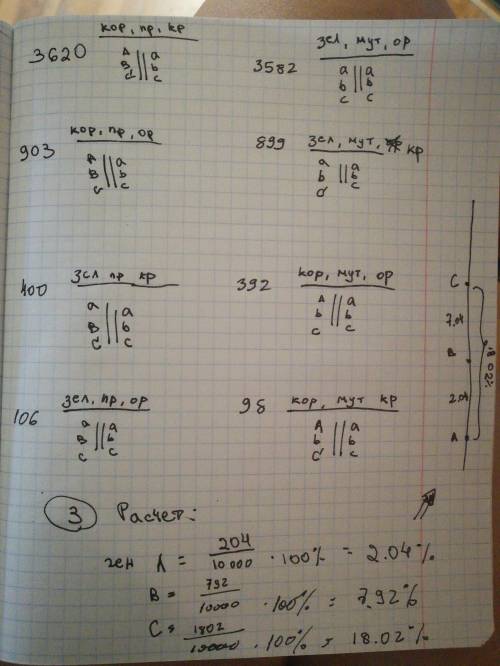 кор, пр, кр
3620
A a
B b
d c
зел, мут, ор
3582
a a
b b
c c
кор, пр, ор
903
A a
B b
c c
899
зел, мут, кр
a a
b b
d c
400
зел пр кр
a a
B b
C c
392
кор, мут, ор
A a
b b
c c
106
зел, пр, ор
a a
B b
c c
98
кор, мут кр
A a
b b
C c
C
7.04
B
2.04
A
18.02%
3 Расчет:
ген A = 204/10 000 · 100% = 2.04%
B = 792/10000 · 100% = 7.92%
C = 1802/10000 · 100% = 18.02%